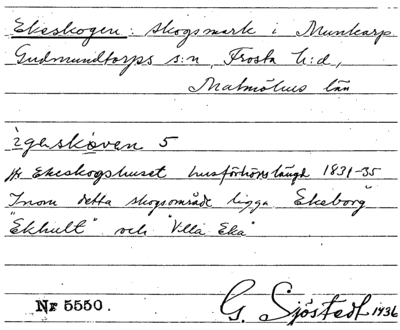 Ekeskogen: skogsmark i Munkarp
Gudmundtorps s:n, Frosta h:d,
Malmöhus län
ègeskoven 5
jfr Ekeskogshuset husförhörslängd 1831-35
Inom detta skogsområde ligga "Ekeborg"
"Ekhult" och "Villa Eka"
Nr 5550. G. Sjöstedt 1936